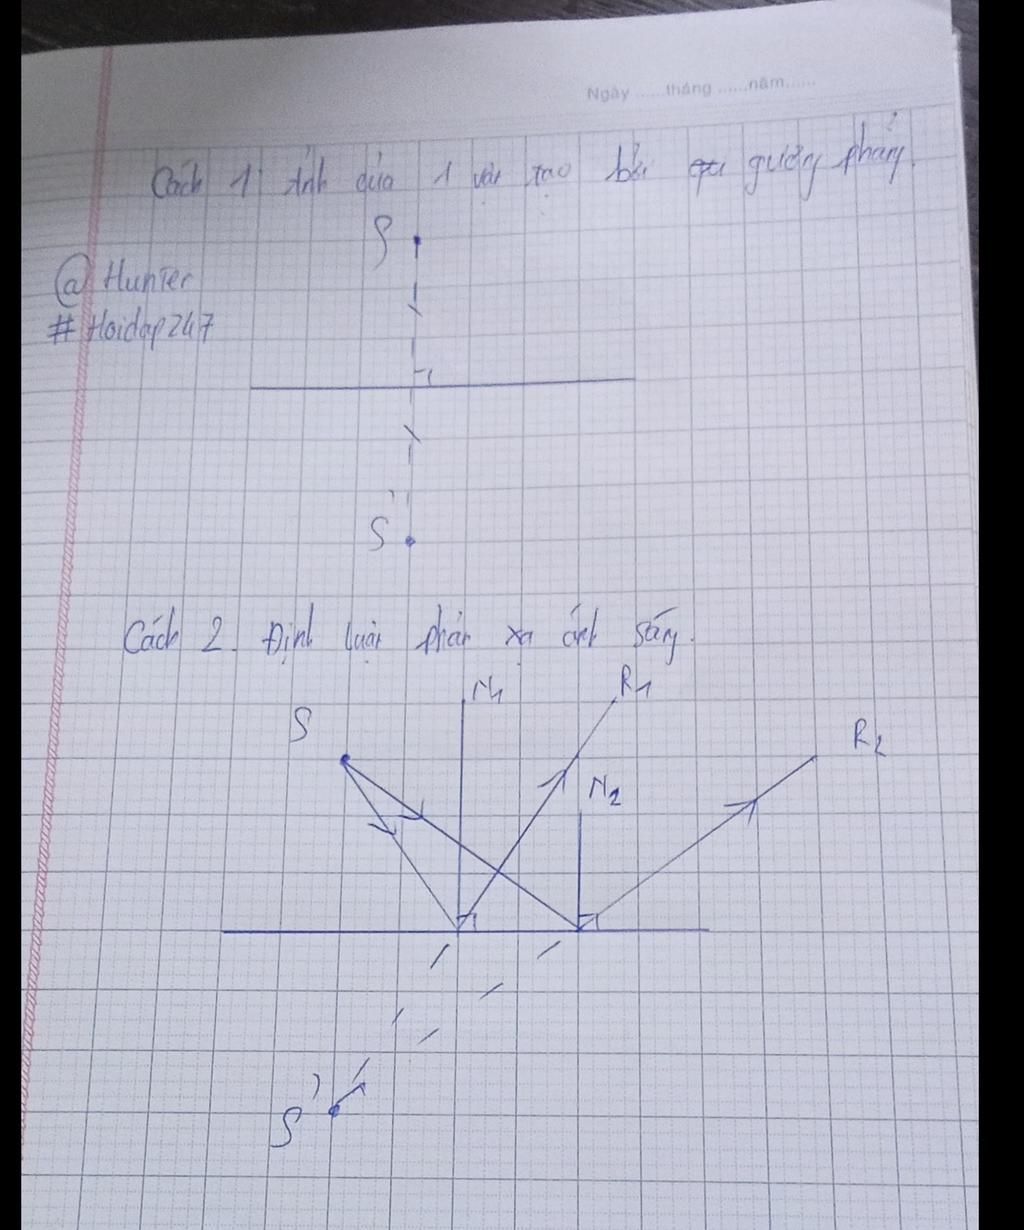 Ngày ......tháng ......năm......
Cách 1 Ảnh của 1 vật tạo bởi gương phẳng.
S
@ Hunter
# Hoidap247
S'
Cách 2. Định luật phản xạ ánh sáng.
N1 R1
S R2
N2
S'